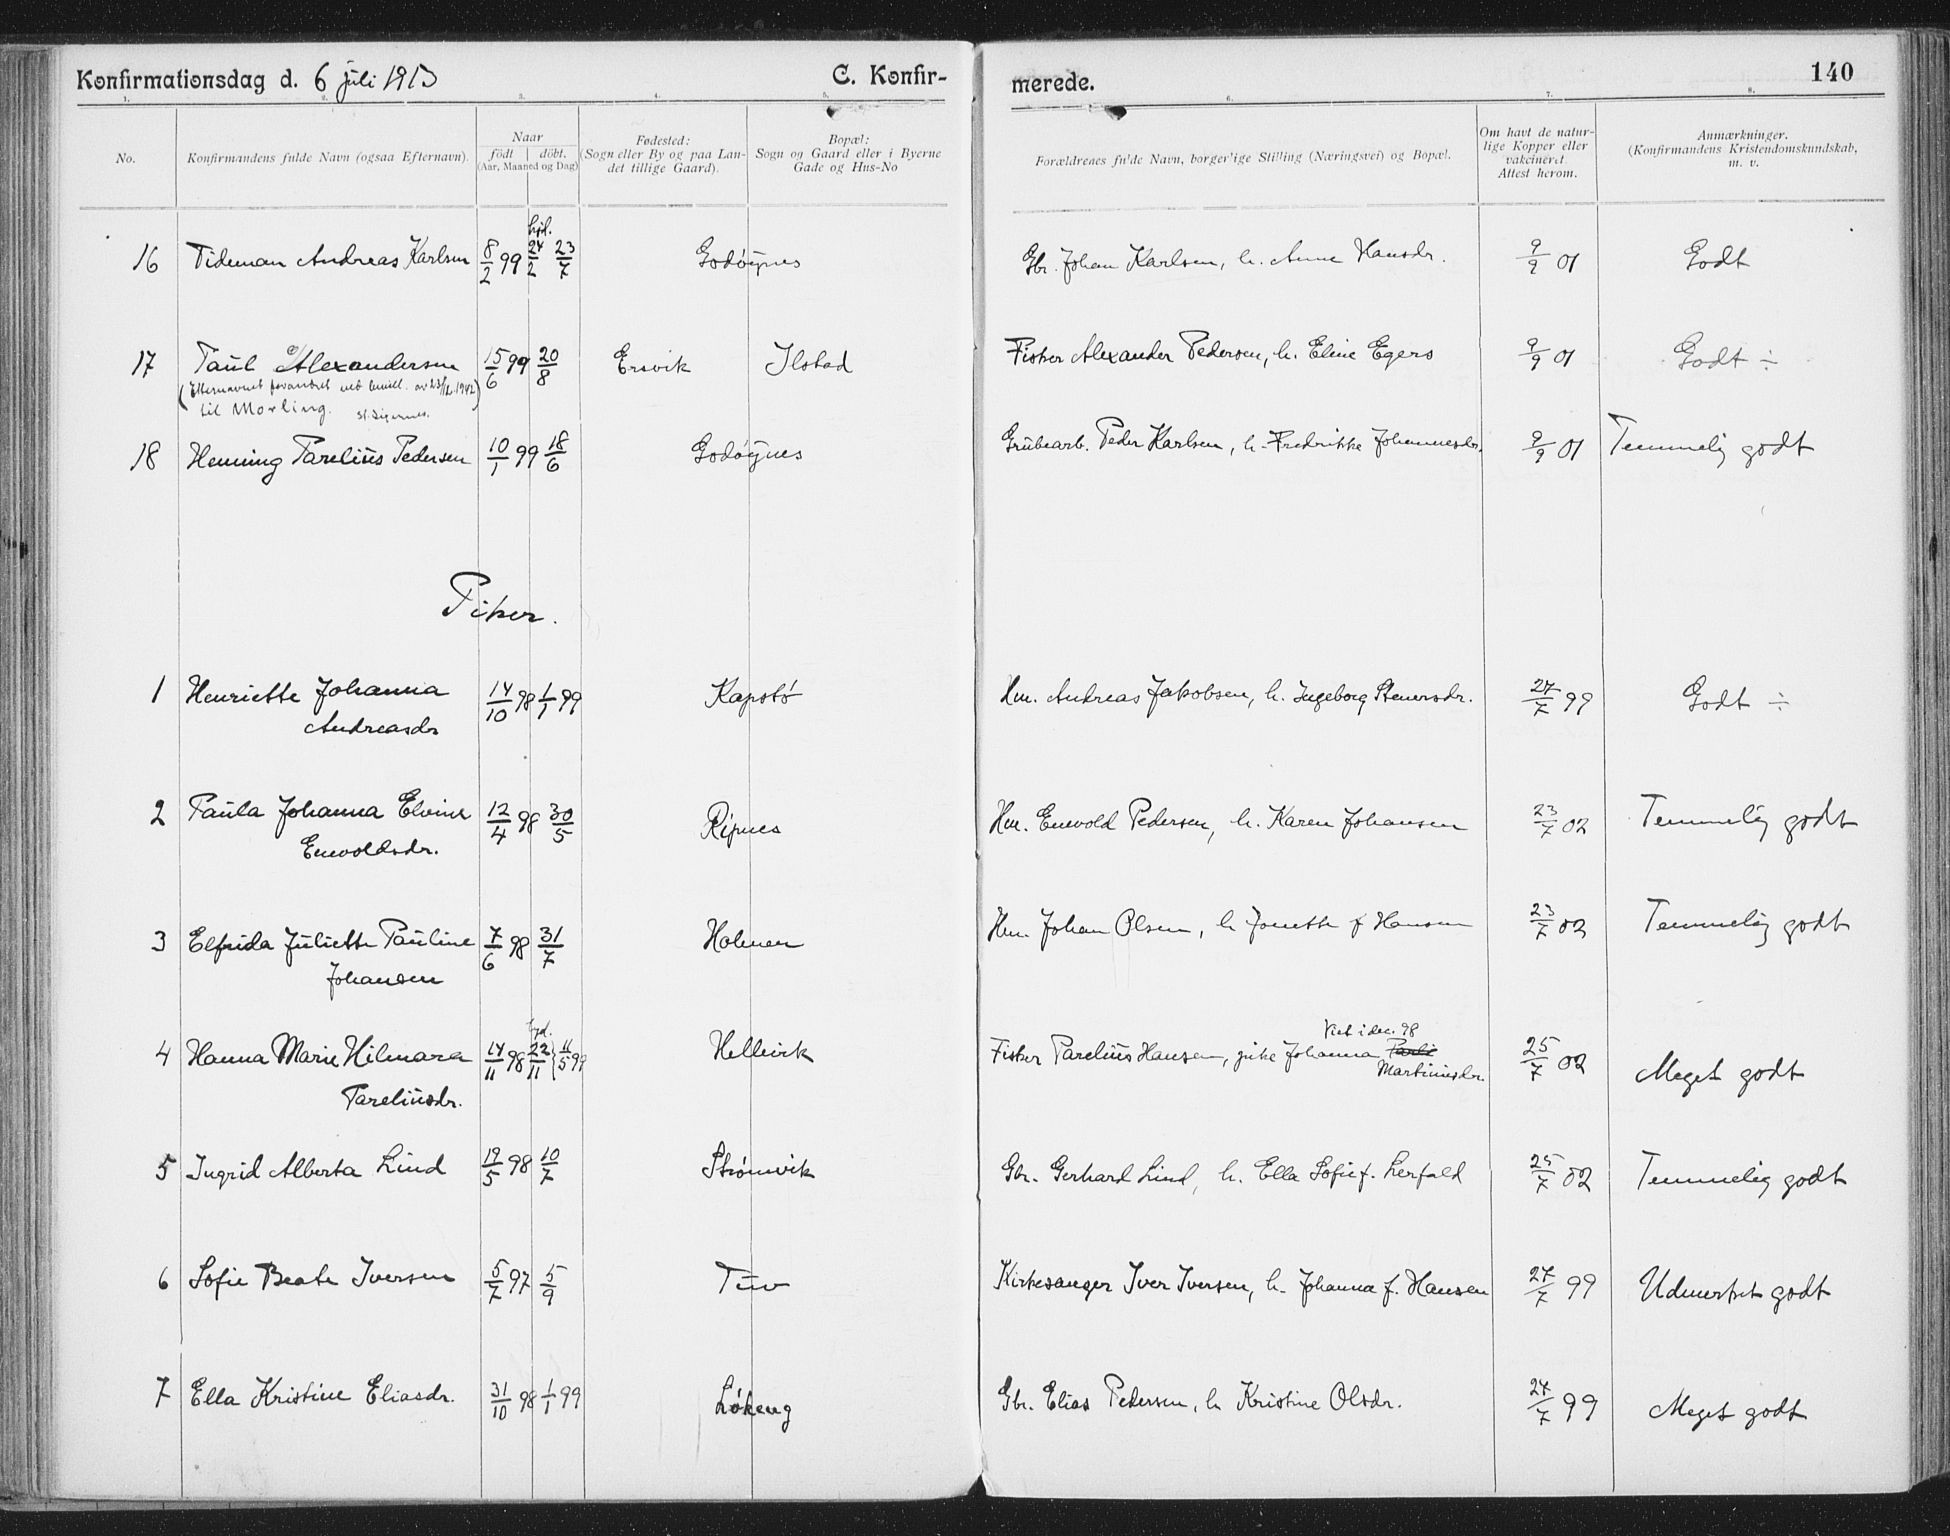 Konfirmationsdag d. 6 juli 1913 C. Konfir-
merede. 140
1. 2. 3. 4. 5. 6. 7. 8.
No.
Konfirmandens fulde Navn (ogsaa Efternavn).
Naar
födt | döbt.
(Aar, Maaned og Dag)
Fødested:
(Sogn eller By og paa Lan-
det tillige Gaard).
Bopæl:
Sogn og Gaard eller i Byerne
Gade og Hus-No
Forældrenes fulde Navn, borgerlige Stilling (Næringsvei) og Bopæl.
Om havt de natur-
lige Kopper eller
vakcineret.
Attest herom.
Anmærkninger.
(Konfirmandens Kristendomskundskab,
m. v.
hjd.
16 Tideman Andreas Karlsen 8/2 99 24/2 23/7 Godøynes Gbr. Johan Karlsen, h. Anne Hansdr. 9/9 01 Godt
17 Paul Alexandersen 15/6 99 20/8 Ersvik Ilstad Fisker Alexander Pedersen, h. Eline Egers 9/9 01 Godt ÷
(Efternavnet forandret ved bevill. av 1942)
til Morling.
18 Henning Parelius Pedersen 10/1 99 18/6 Godøynes Grubearb. Peder Karlsen, h. Fredrikke Johannesdr. 9/9 01 Temmelig godt
Piker.
1 Henriette Johanna 14/10 98 1/1 99 Kapstø Hm. Andreas Jakobsen, h. Ingeborg Stenersdr. 27/7 99 Godt ÷
Andreasdr
2 Paula Johanna Elvine 12/4 98 30/5 Ripnes Hm. Enevold Pedersen, h. Karen Johansen 23/7 02 Temmelig godt
Enevoldsdr.
3 Elfrida Juliette Pauline 7/6 98 31/7 Holmen Hm. Johan Olsen, h. Jonette f Hansen 23/7 02 Temmelig godt
Johansen
hjd.
Viet i dec. 98
4 Hanna Marie Hilmara 14/11 98 22/11 } 11/5 99 Hellvik Fisker Parelius Hansen, pike Johanna Parli 25/7 02 Meget godt
Pareliusdr. Martinusdr.
5 Ingrid Alberta Lind 19/5 98 10/7 Strømvik Gbr. Gerhard Lind, h. Ella Sofie f. Lerfald 25/7 02 Temmelig godt
6 Sofie Beate Iversen 5/7 97 5/9 Tuv Kirkesanger Iver Iversen, h. Johanna f. Hansen 27/7 99 Udmerket godt
7 Ella Kristine Eliasdr. 31/10 98 1/1 99 Løkeng Gbr. Elias Pedersen, h Kristine Olsdr. 27/7 99 Meget godt